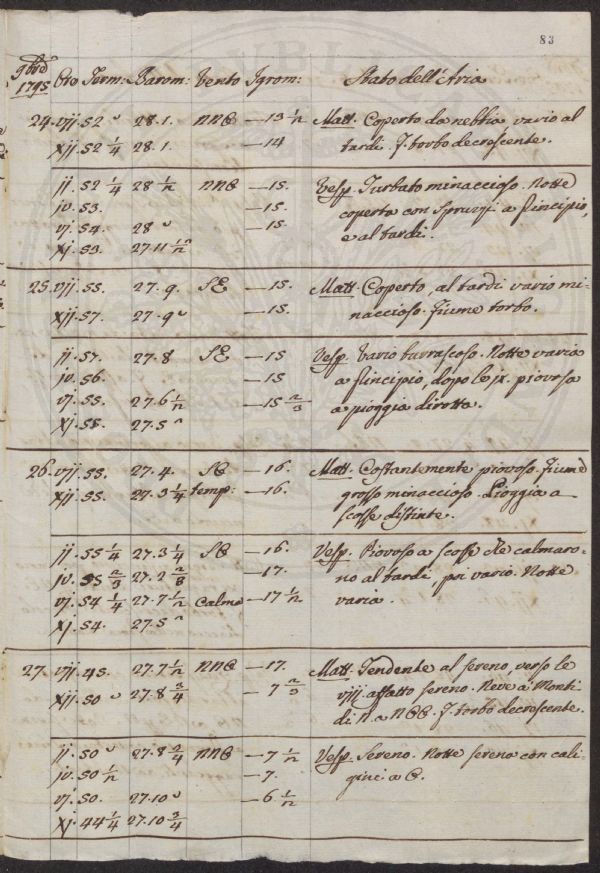 83
9bre 1795 Ore Term: Barom: Vento Igrom: Stato dell'Aria
24. vij. 52 ᵕ 28.1. NNE —13 ½ Matt. Coperto da nebbia vario al
xij. 52 ¼ 28.1. —14 tardi. F. torbo decrescente.
ij. 52 ¼ 28 ½ NNE —15. Vesp. Turbato minaccioso. Notte
iv. 53. —15. coperta con spruzzi a principio,
vj. 54. 28 ᵕ —15. e al tardi.
xj. 53. 27.11 ½
25. vij. 55. 27.9. SE —15. Matt. Coperto, al tardi vario mi-
xij. 57. 27.9 ᵕ —15. naccioso. Fiume torbo.
ij. 57. 27.8 SE —15 Vesp. Vario burrascoso. Notte varia
iv. 56. —15 a principio, dopo le ix. piovosa
vj. 55. 27.6 ½ —15 ⅔ a pioggia dirotta.
xj. 55. 27.5
26. vij. 55. 27.4. SE —16. Matt. Costantemente piovoso. Fiume
xij. 55. 27.3 ¼ temp: —16. grosso minaccioso. Pioggia a
scosse distinte.
ij. 55 ¼ 27.3 ¼ SE —16. Vesp. Piovoso a scosse che calmaro-
iv. 55 ⅔ 27.2 —17. no al tardi, poi vario. Notte
vj. 54 ¼ 27.7 ½ Calma —17 ½ varia.
xj. 54. 27.5
27. vij. 45. 27.7 ½ NNE —17. Matt. Tendente al sereno, verso le
xij. 50 ᵕ 27.8 ¾ —7 ⅔ viij. affatto sereno. Neve a' Monti
di N. a NEE. F. torbo decrescente.
ij. 50 ᵕ 27.8 ¾ NNE —7 ½ Vesp. Sereno. Notte serena con cali-
iv. 50 ½ —7. gine a E.
vj. 50. 27.10 ᵕ —6 ½
xj. 44 ¼ 27.10 ¾